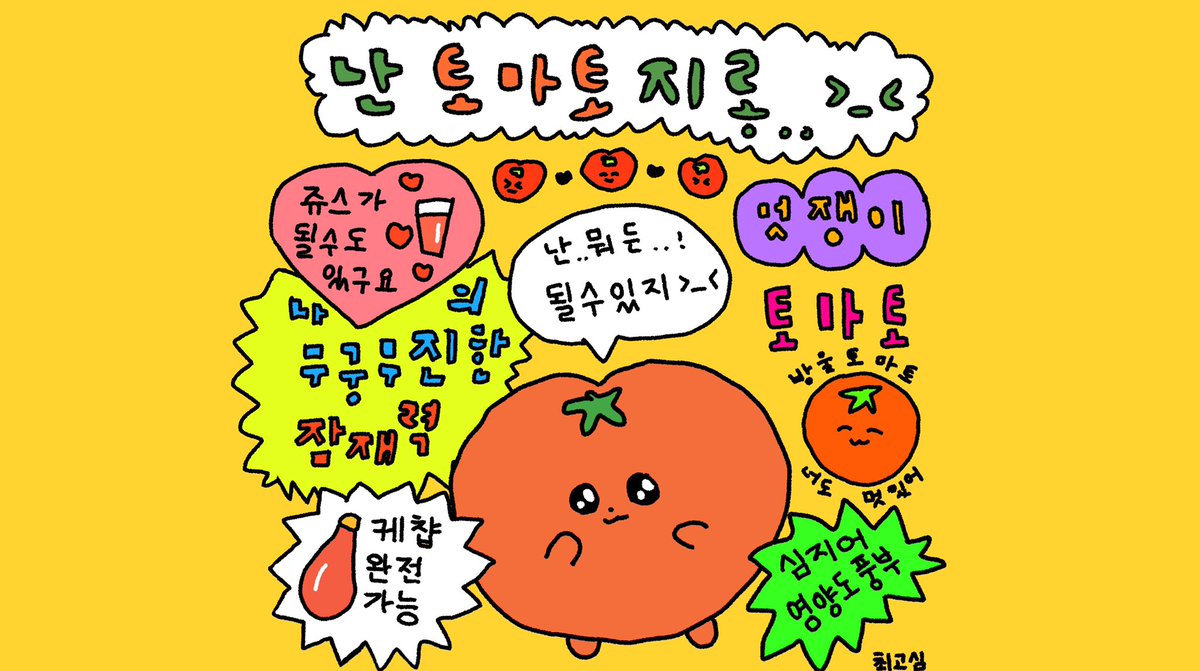 난 토마토지롱.. >_<
쥬스가
될수도
있구요
난..뭐든..!
될수있지>_<
멋쟁이
토마토
나의
무궁무진한
잠재력
방울토마토
너도 멋있어
케챱
완전
가능
심지어
영양도풍부
최고심